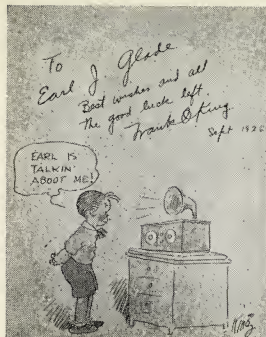 To
Earl J. Glade
Best wishes and all
the good luck left.
Frank O King
Sept 1926
EARL IS
TALKIN'
ABOUT ME!
KING